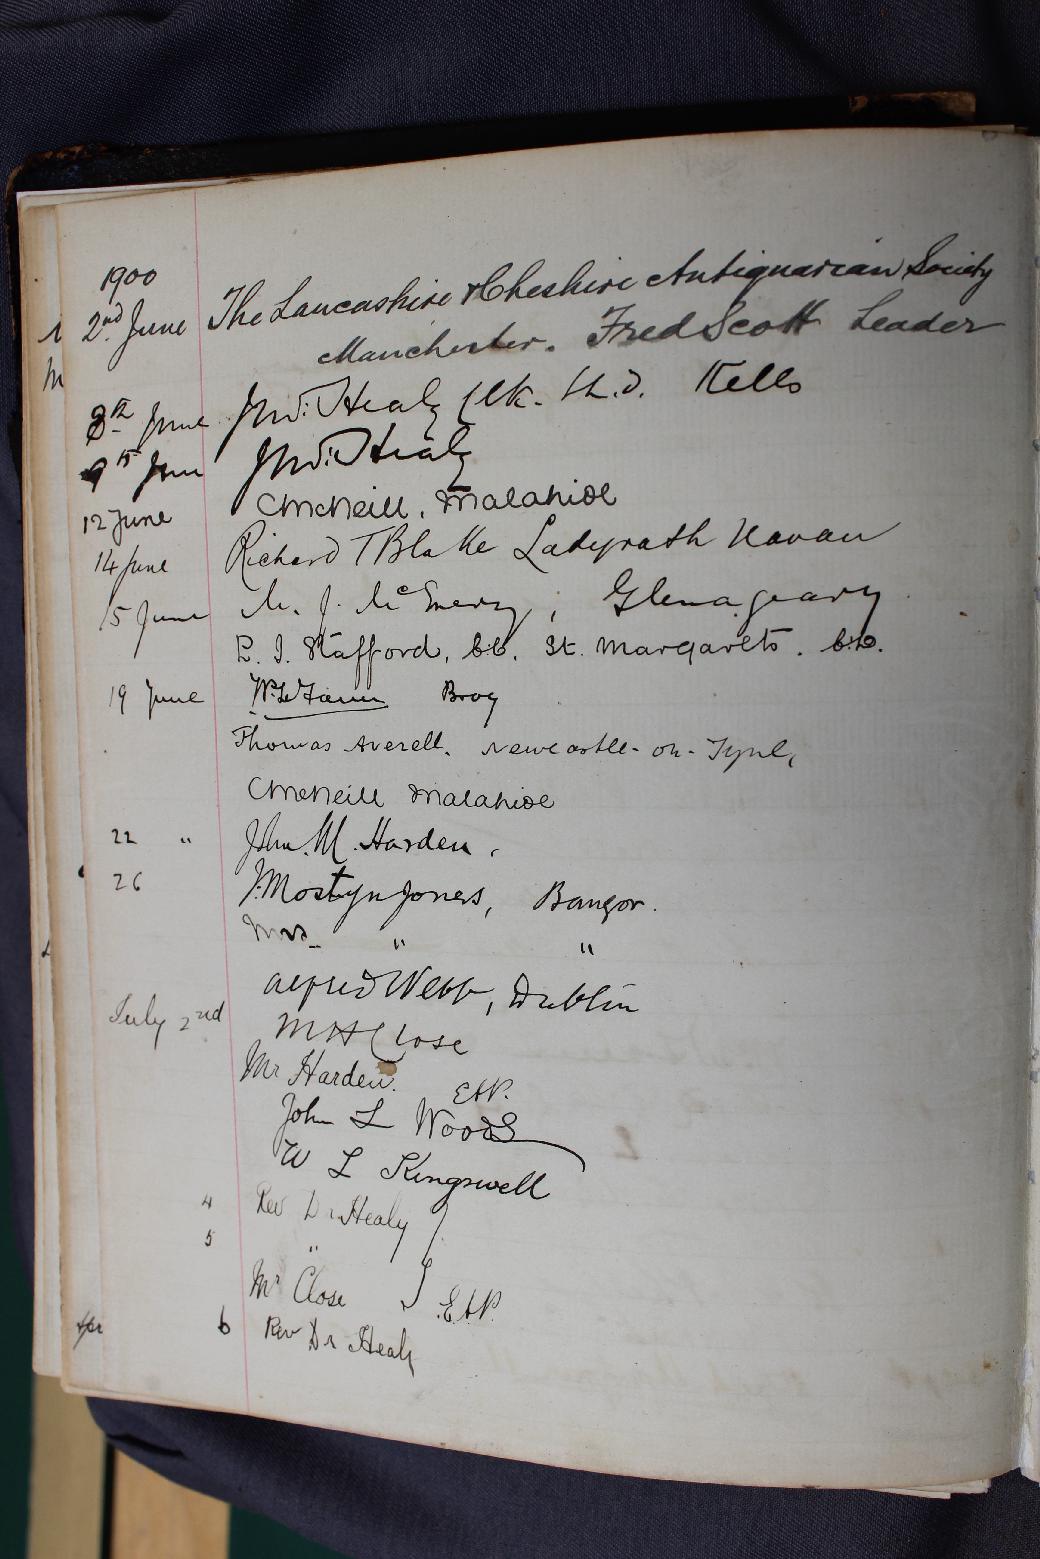 1900
2nd June The Lancashire & Cheshire Antiquarian Society
Manchester. Fred Scott Leader
8th June Jno. Healy Clk. LL.D. Kells
9th June Jno. Healy
12 June C McNeill, Malahide
14 June Richard T Blake Ladyrath Navan
15 June M. J. McEnery, Glenageary
P. J. Stafford, C.C. St. Margarets. Co. D.
19 June W. Le Fanu Bray
Thomas Averell. Newcastle-on-Tyne,
C McNeill Malahide
22 " John M. Harden,
26 J. Mostyn Jones, Bangor.
Mrs. " "
Alfred Webb, Dublin
July 2nd M H Close
Mr Harden. E.A.P.
John L Woods
W L Kingswell
4 Rev Dr Healy
5 "
Mr Close E.A.P.
6 Rev Dr Healy